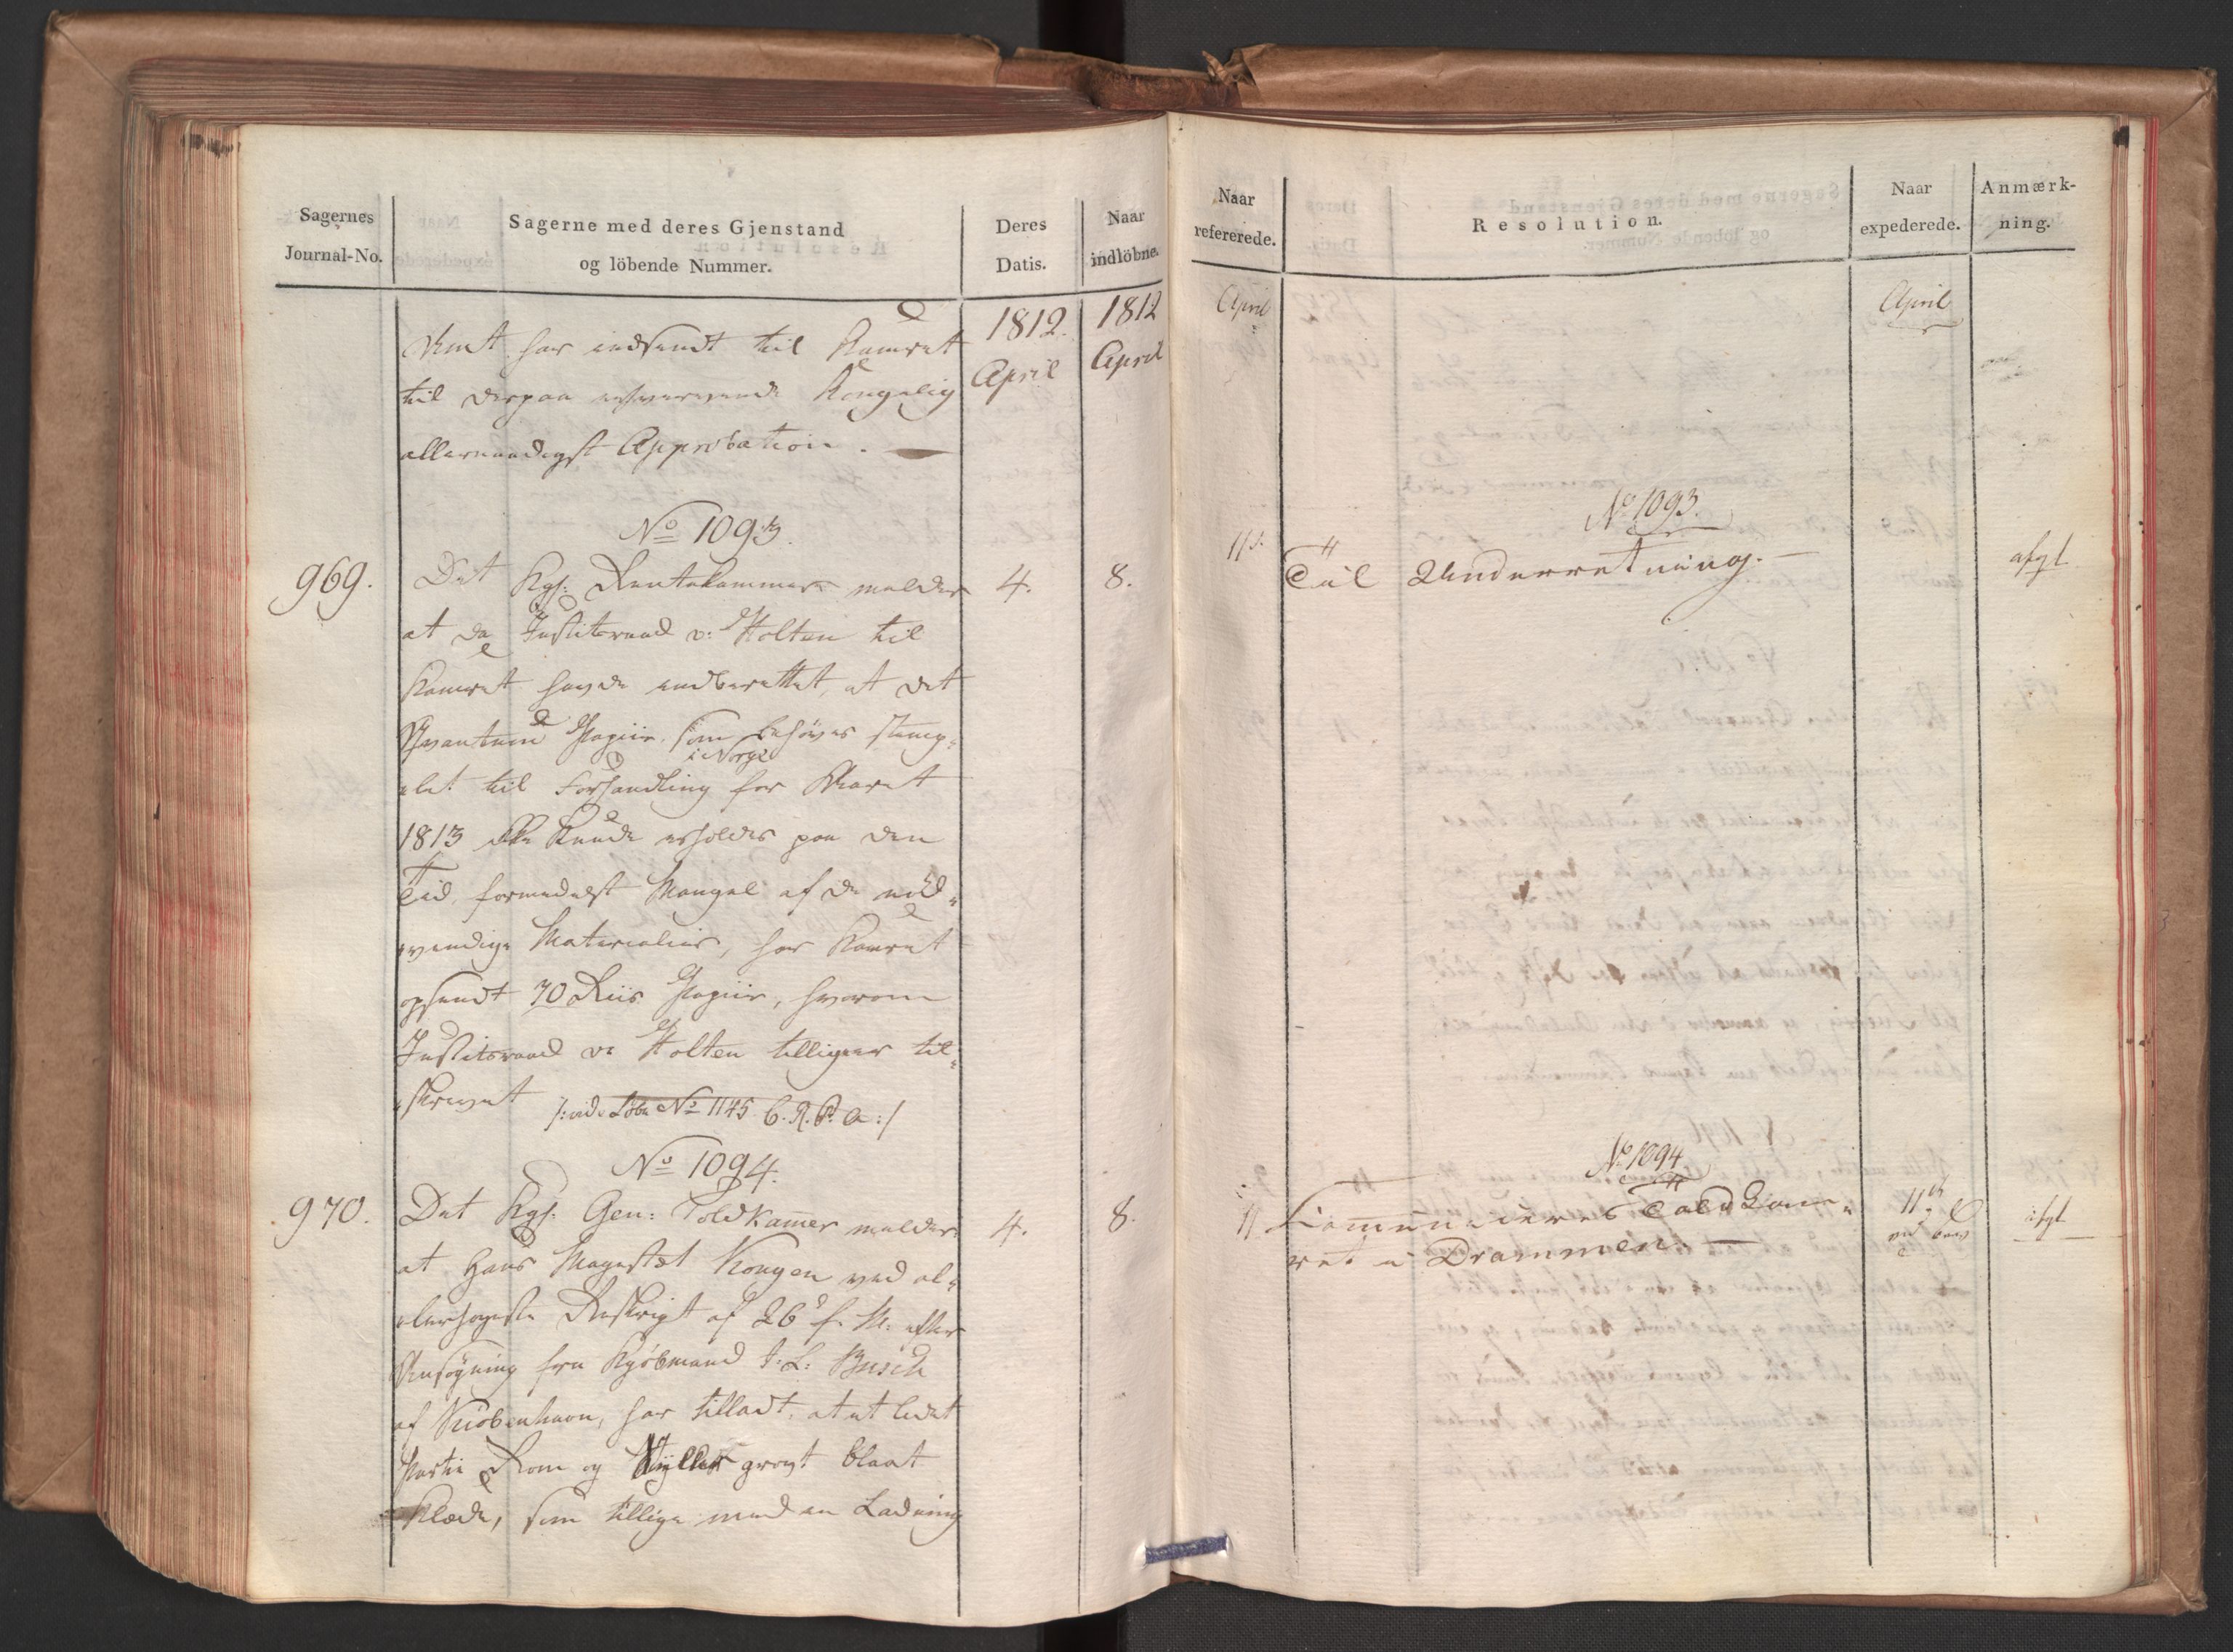 Sagernes
Journal-No.
Sagerne med deres Gjenstand
og löbende Nummer.
Deres
Datis.
Naar
indlöbne.
1812.
April
1812
April
har indsendt til Kamret
til derpaa erhvervende Kongelig
allernaadigst Approbation. —
No 1093.
969.
Det Kgl: Rentekammer melder
4.
8.
at da Justitsraad v: Holten til
Kamret havde indberettet, at det
Qvantum Papiir, som behöves stemp-
i Norge
let til Forhandling for Aaret
1813 ikke kunde erholdes paa den
Tid, formedelst Mangel af de nöd-
vendige Materialier, har Kamret
opsendt 70 Riis Papiir, hvorom
Justitsraad v: Holten tilligeer til-
skrevet /: vid: Löbe No 1145 C. R. P. a :/
No 1094.
970.
Det Kgl: Gen: Toldkamer melder
4.
8.
at Hans Majestæt Kongen ved al-
lerhöyeste Reskript af 26d f: M: efter
Ansögning fra Kjöbmand J: L: Busch
af Kiöbenhavn, har tilladt, at et lidet
Partie Rom og grovt blaat
Klæde, som tillige med en Ladning
Naar
refererede.
Resolution.
Naar
expederede.
Anmærk-
ning.
April
April
No 1093.
11
Til Underretning. —
afgl
No 1094
11
Communiceres Toldkam-
ret i Drammen. —
11
afgl